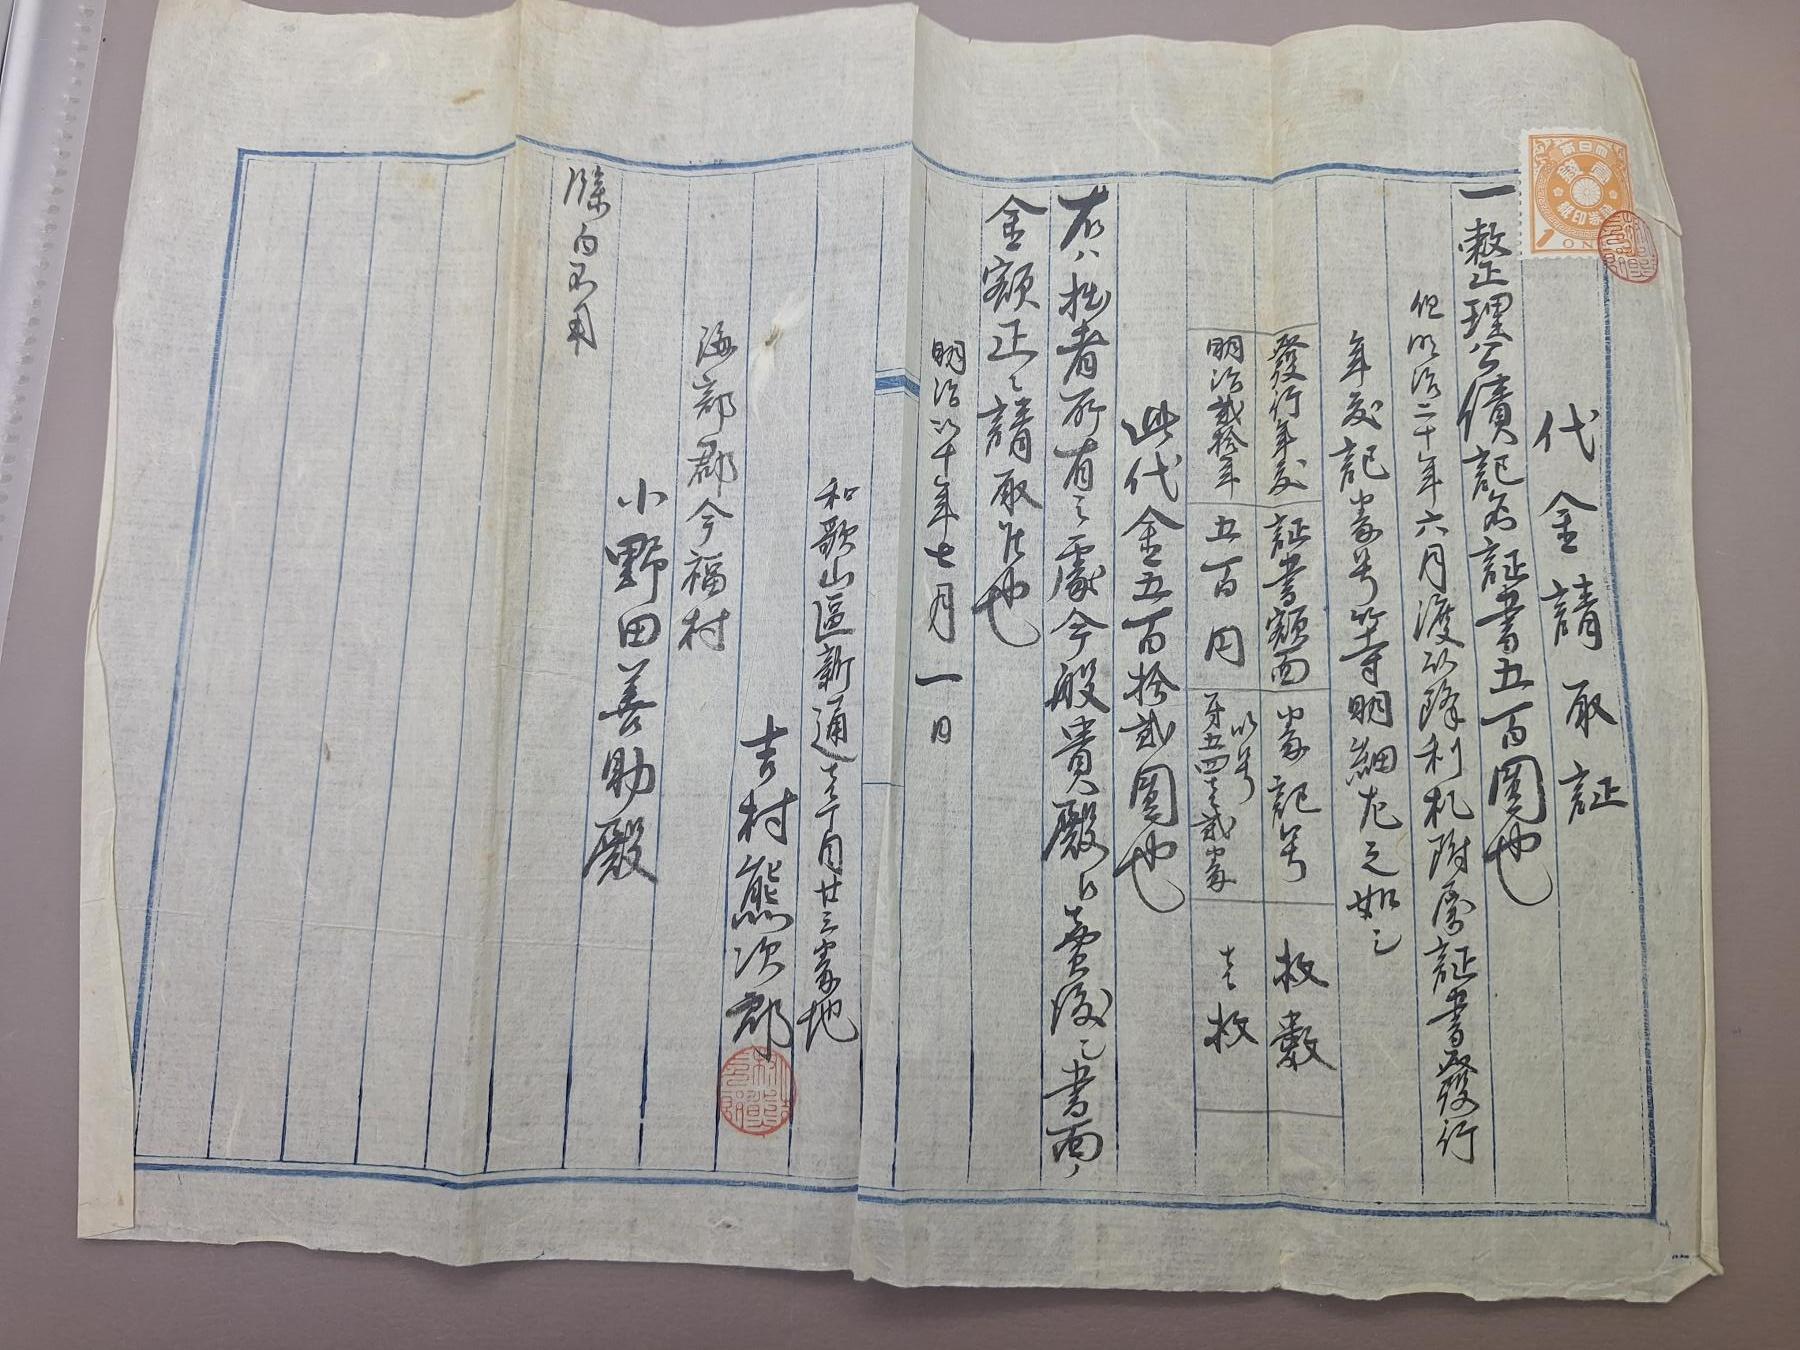 代金請取証
一整理公債記名証書五百圓也
但明治二十年六月渡以降利札附属証書発行
年度記番号等明細左之如シ
發行年度 証書額面 番記号 枚數
明治貳拾年 五百円 い号 第五四壱貳番 壱枚
此代金五百拾貳圓也
右ハ拙者所有之處今般貴殿ヘ賣渡シ書面ノ
金額正ニ請取候也
明治 十年七月一日
和歌山區新通壱丁目廿三番地
吉村熊次郎
海部郡今福村
小野田善助殿
餘白不用
ONE